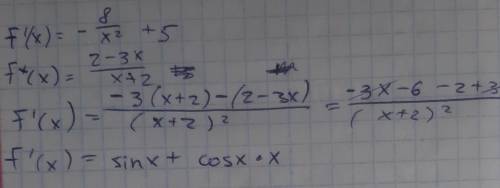 F'(x) = - 8/x² + 5
F'(x) = (2-3x)/(x+2)
F'(x) = (-3(x+2)-(2-3x))/(x+2)² = (-3x-6-2+3)/(x+2)²
F'(x) = sinx + cosx · x